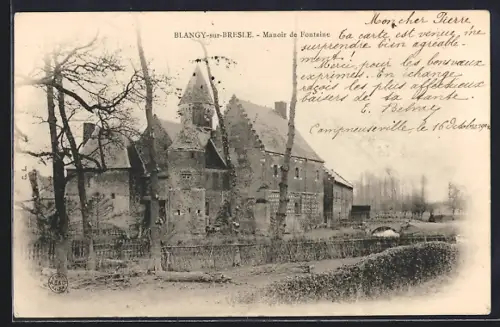 BLANGY-sur-BRESLE. - Manoir de Fontaine
Mon cher Pierre
Ta carte est venue, me
surprendre bien agréable-
ment!
Merci, pour les bons vœux
exprimés. En échange
reçois les plus affectueux
baisers de ta tante
Campneuseville, le 16 Octobre